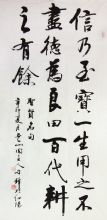 信乃至寶一生用之不
盡德為良田百代耕
之有餘
聖賢名句